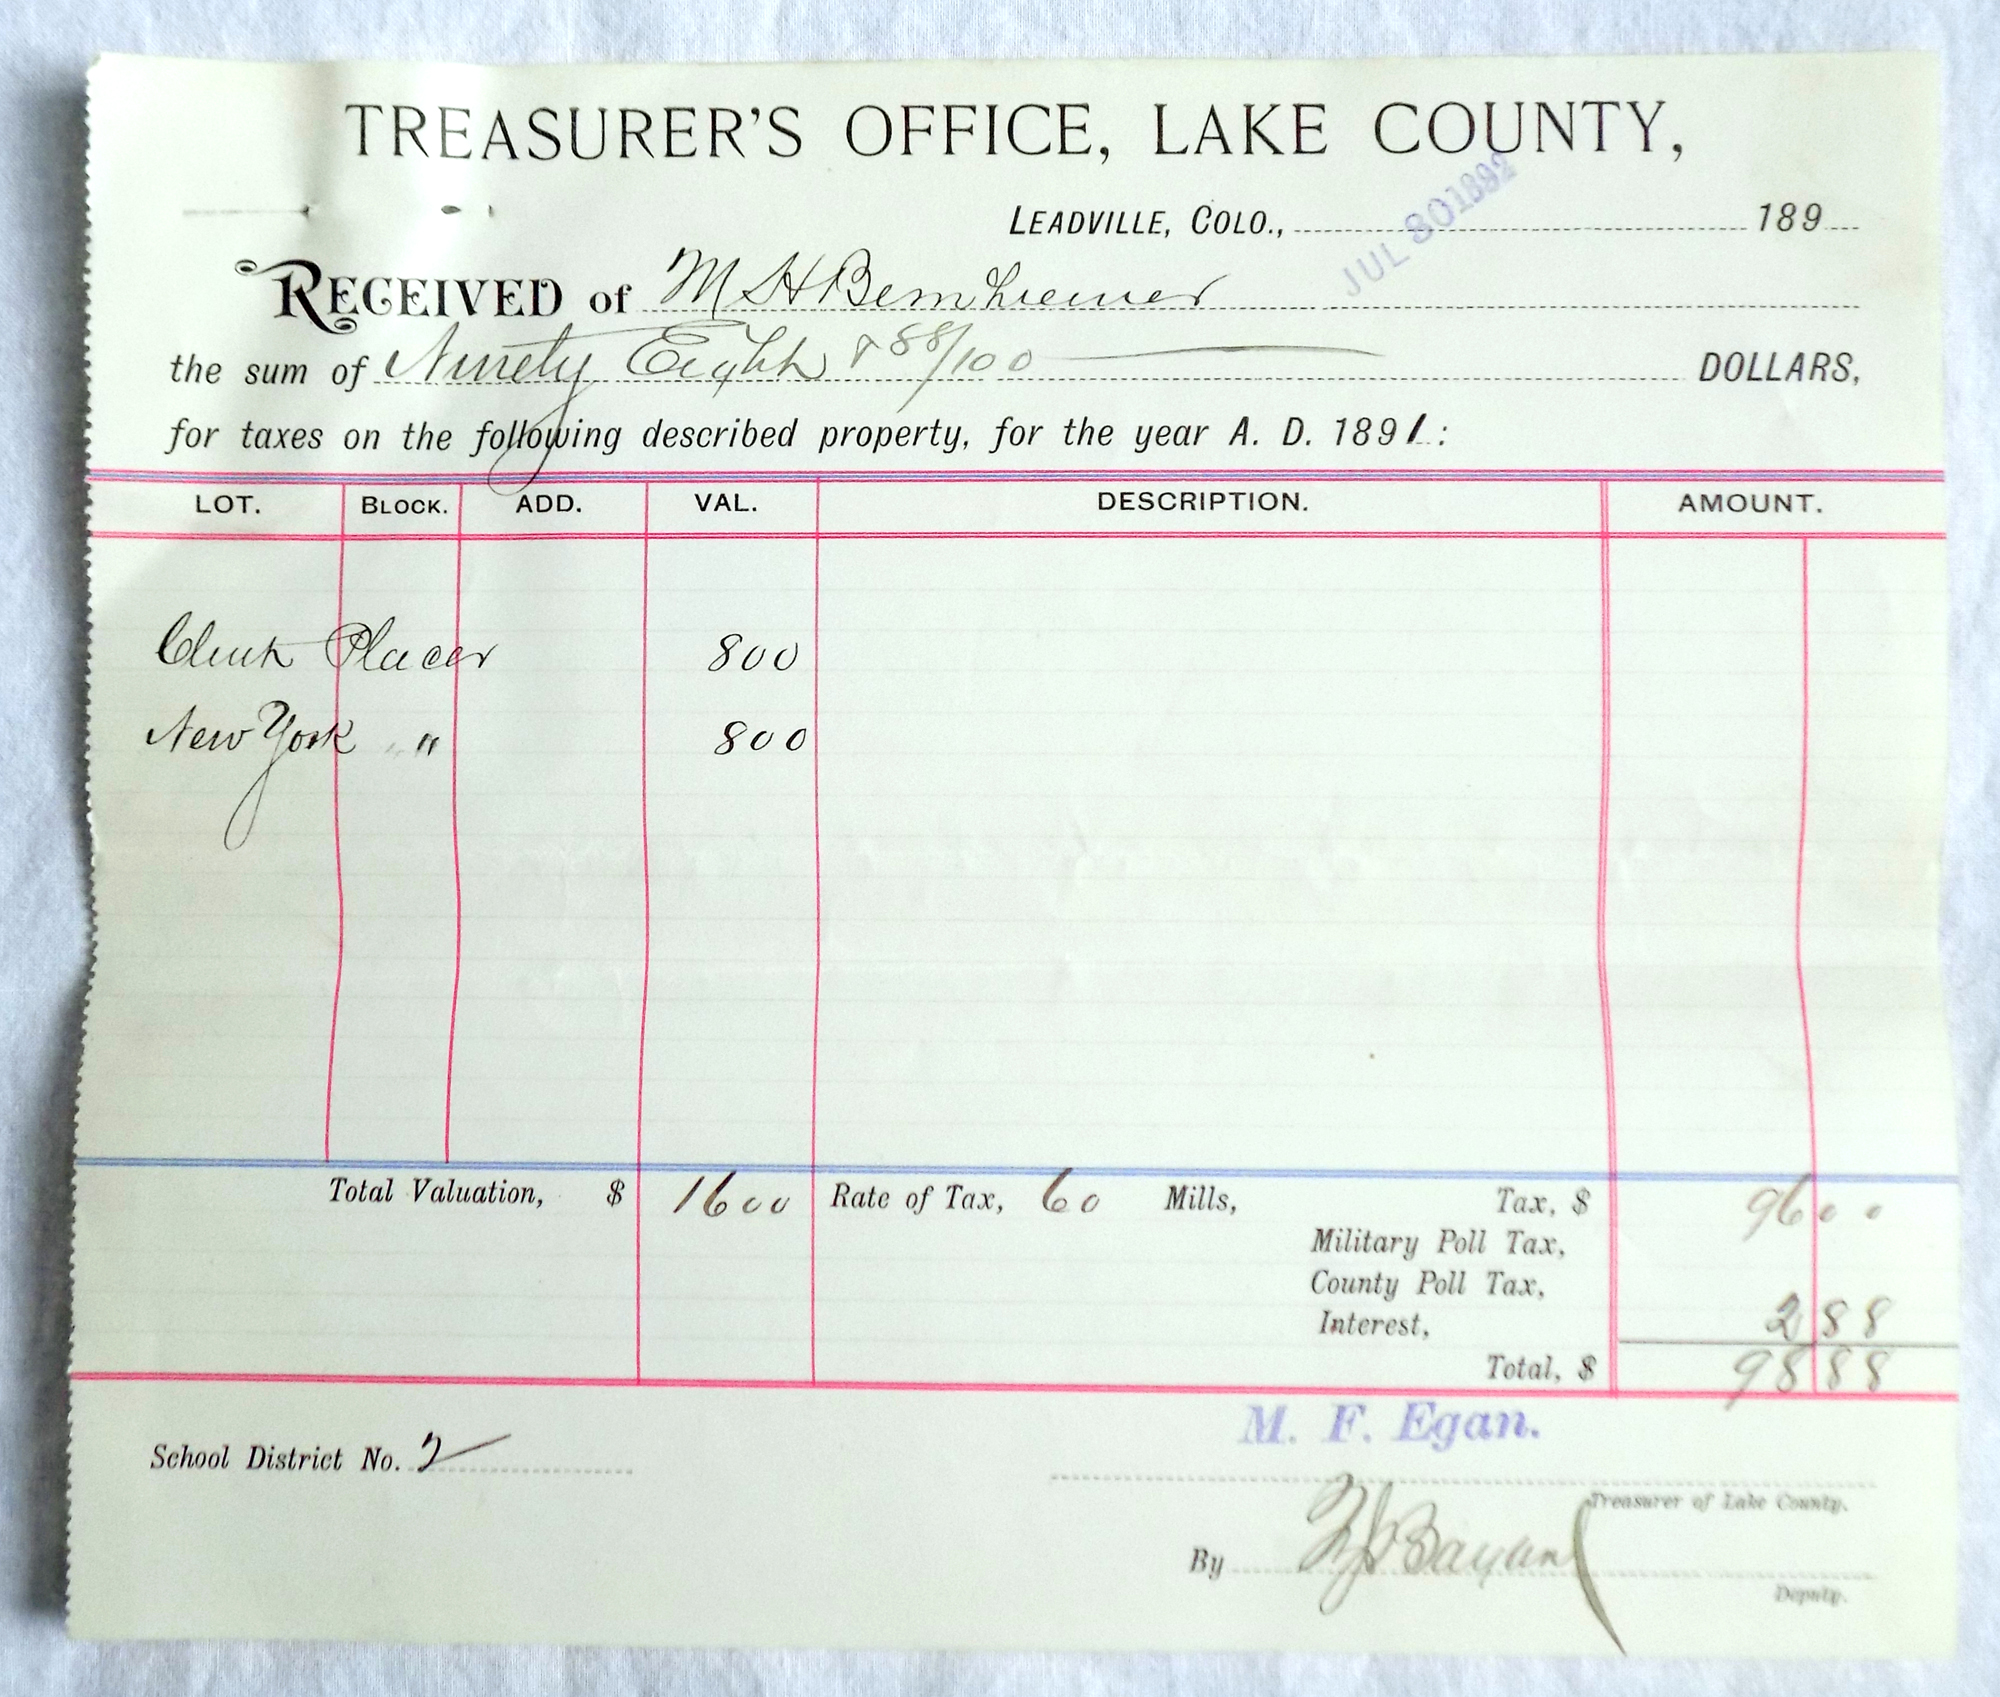 TREASURER'S OFFICE, LAKE COUNTY,
LEADVILLE, COLO., JUL 30 1892 189
RECEIVED of M H Bernheimer
the sum of Ninety Eight & 88/100 DOLLARS,
for taxes on the following described property, for the year A. D. 1891:
LOT. BLOCK. ADD. VAL. DESCRIPTION. AMOUNT.
Placer 800
New York " 800
Total Valuation, $ 1600 Rate of Tax, 60 Mills, Tax, $ 96 00
Military Poll Tax,
County Poll Tax,
Interest, 2 88
Total, $ 98 88
M. F. Egan.
School District No. 2
Treasurer of Lake County.
By
Deputy.